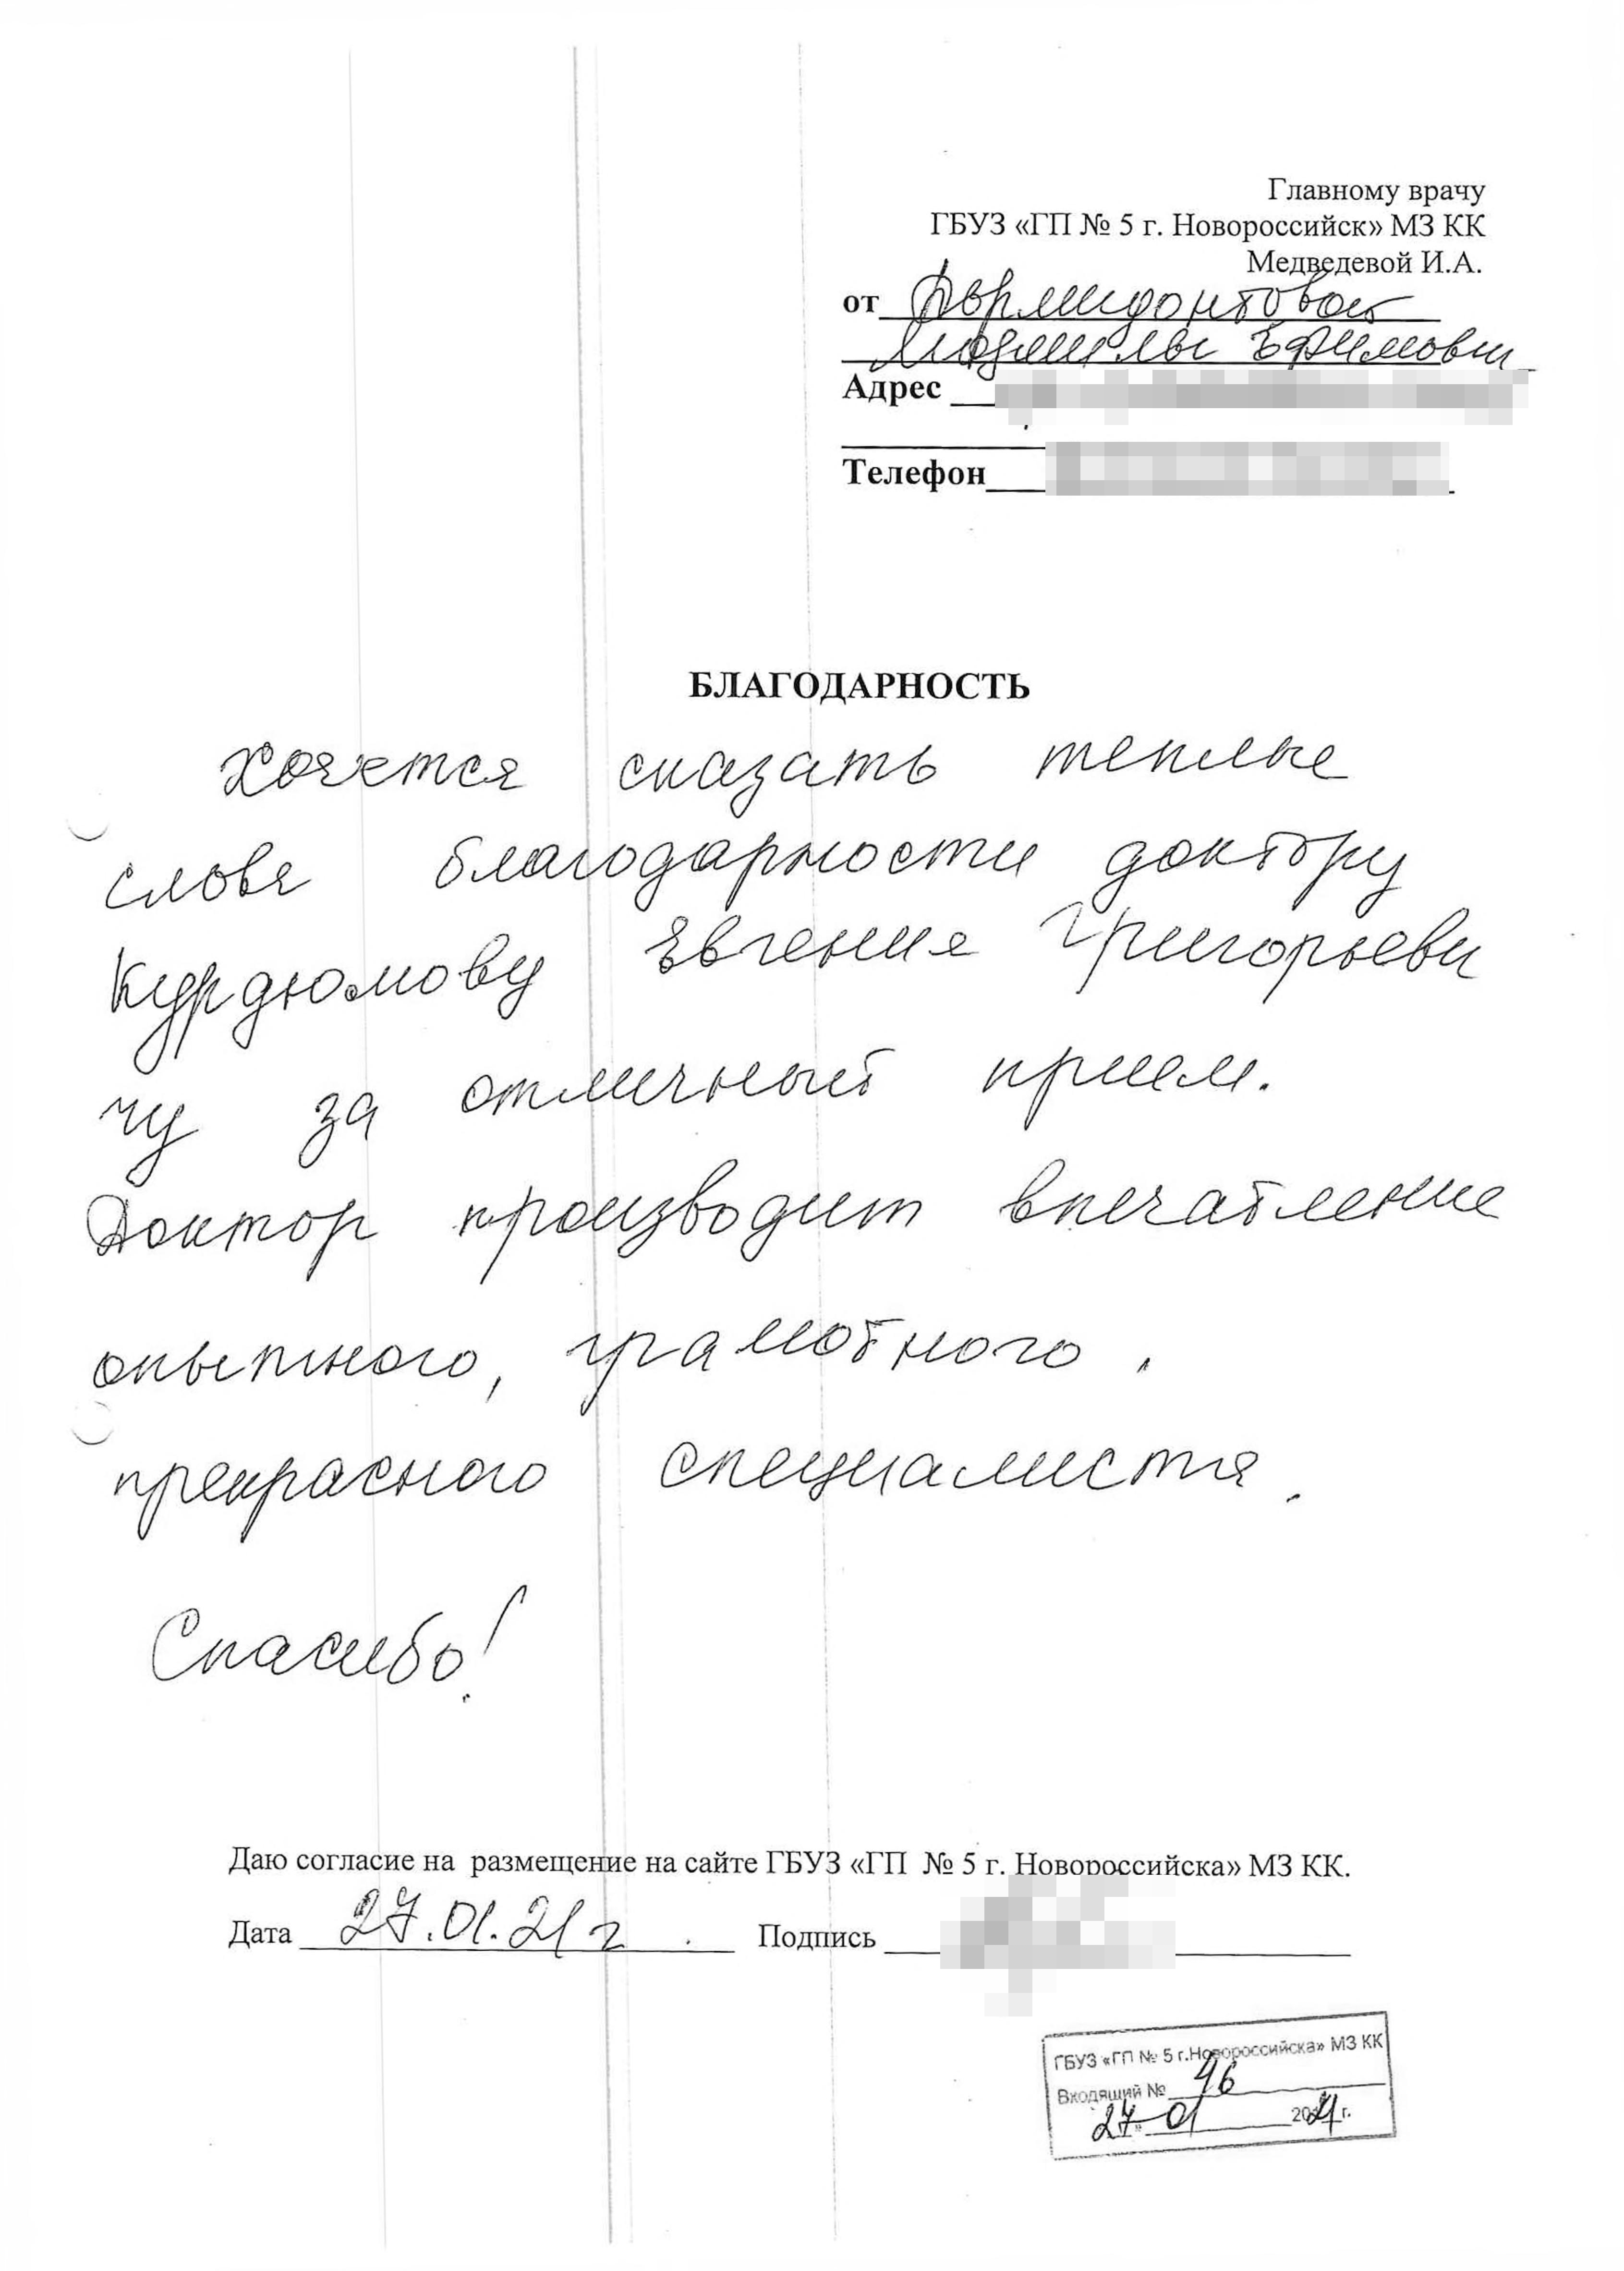 Главному врачу
ГБУЗ «ГП № 5 г. Новороссийск» МЗ КК
Медведевой И.А.
от Дормидонтовой
Людмилы Ефимовны
Адрес
Телефон
БЛАГОДАРНОСТЬ
Хочется сказать теплые
слова благодарности доктору
Курдюмову Евгению Григорьеви
чу за отличный прием.
Доктор производит впечатление
опытного, грамотного,
прекрасного специалиста.
Спасибо!
Даю согласие на размещение на сайте ГБУЗ «ГП № 5 г. Новороссийска» МЗ КК.
Дата 27.01.21 г. Подпись
ГБУЗ «ГП № 5 г.Новороссийска» МЗ КК
Входящий № 46
27 01 2021 г.